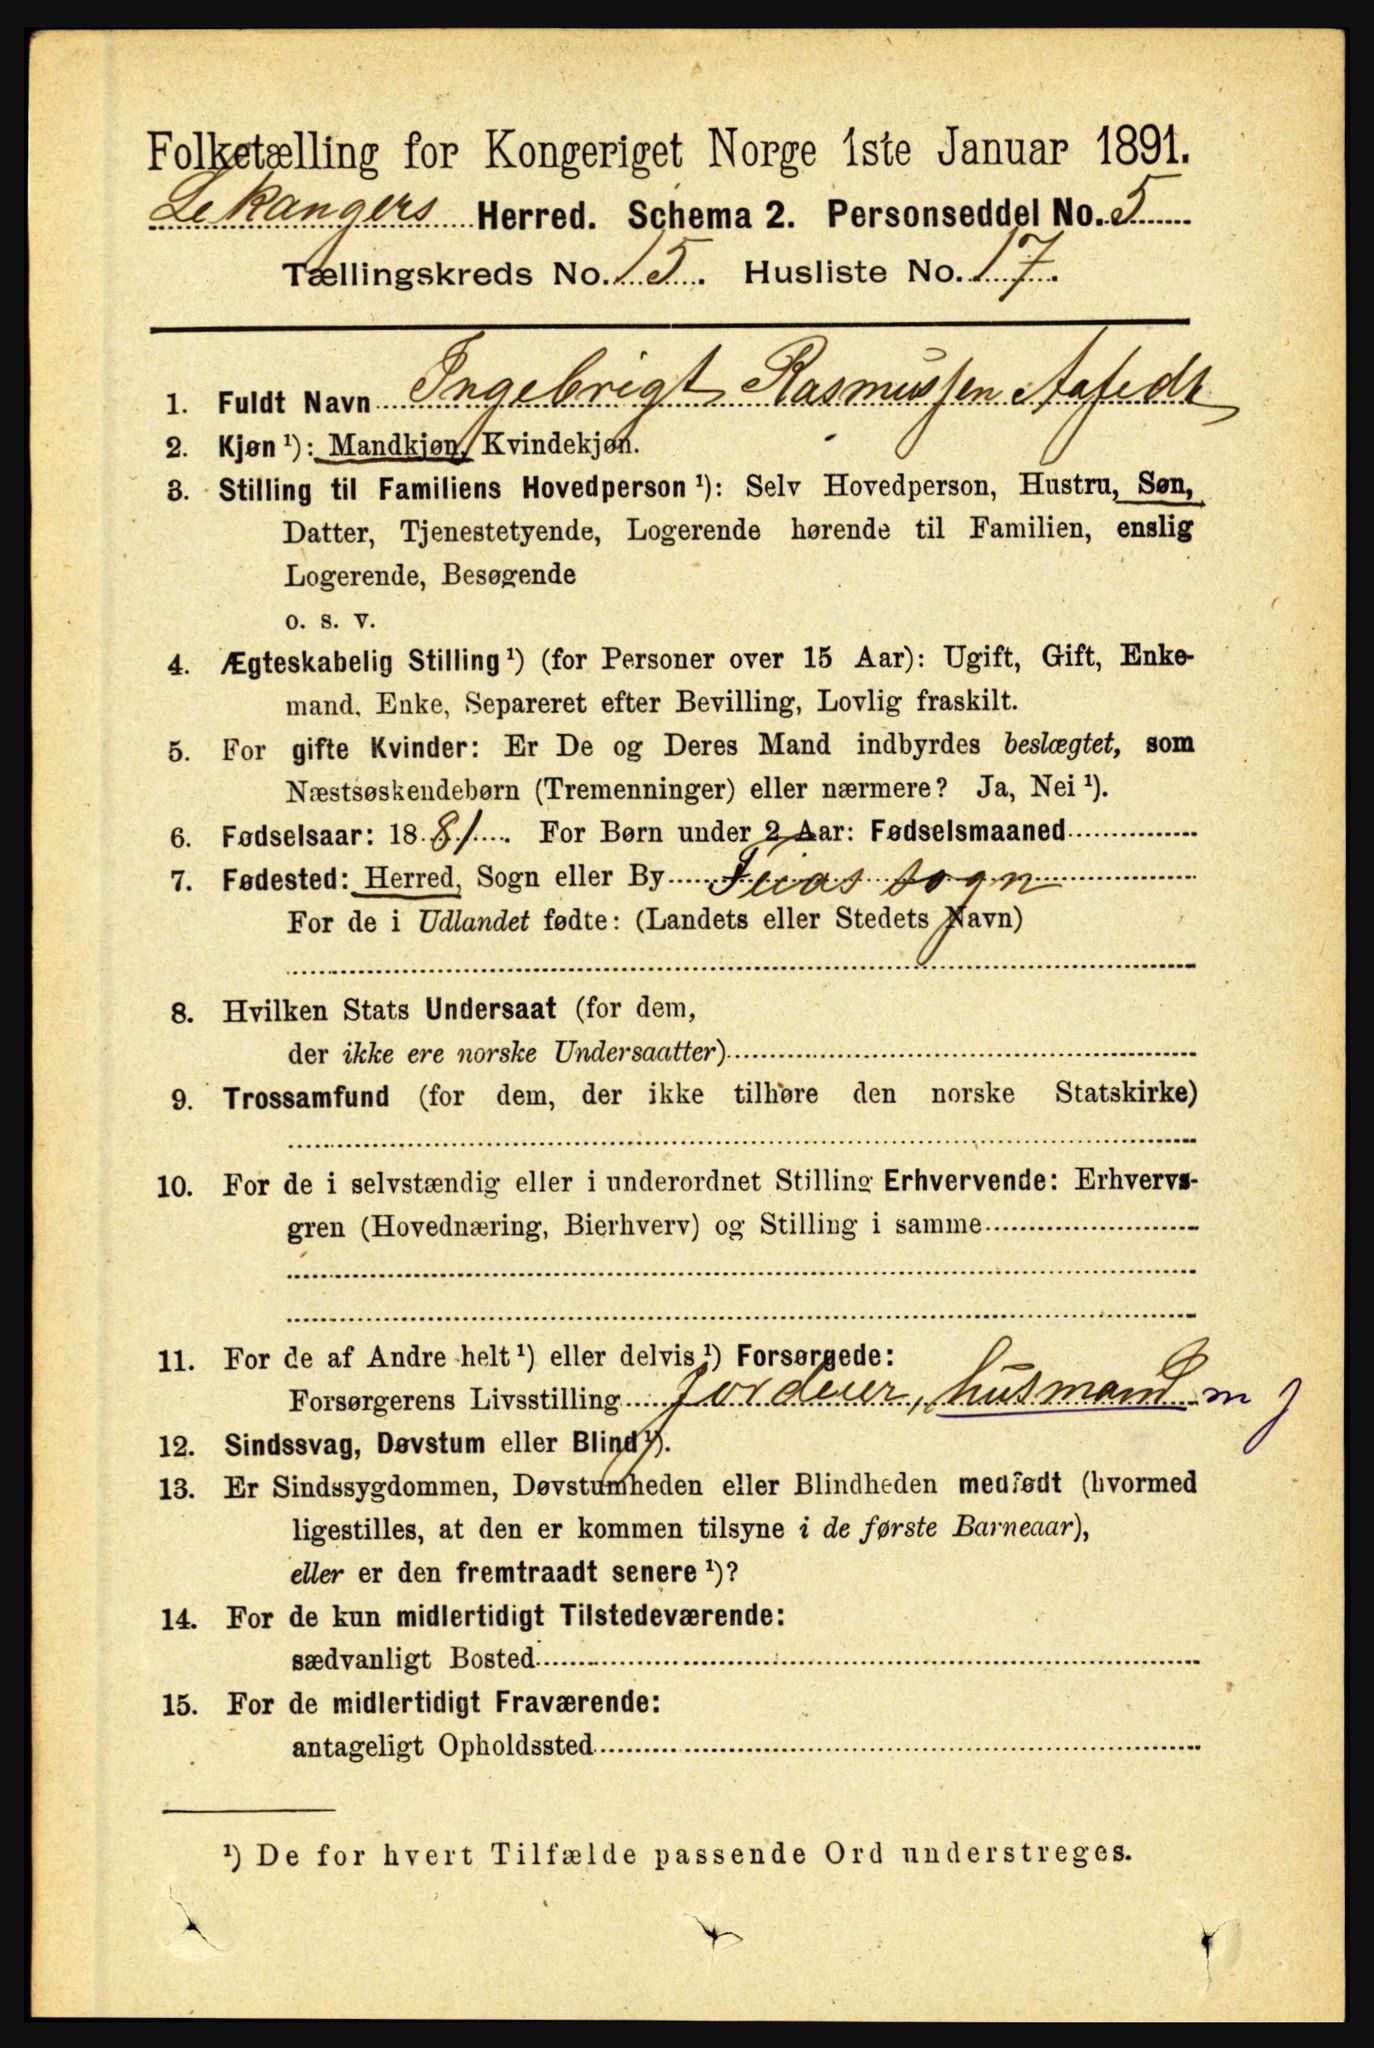 Folketælling for Kongeriget Norge 1ste Januar 1891.
Lekangers Herred. Schema 2. Personseddel No. 5
Tællingskreds No. 15. Husliste No. 17.
1. Fuldt Navn Ingebrigt Rasmussen Aafedt
2. Kjøn ¹): Mandkjøn, Kvindekjøn.
3. Stilling til Familiens Hovedperson ¹): Selv Hovedperson, Hustru, Søn,
Datter, Tjenestetyende, Logerende hørende til Familien, enslig
Logerende, Besøgende
o. s. v.
4. Ægteskabelig Stilling ¹) (for Personer over 15 Aar): Ugift, Gift, Enke-
mand, Enke, Separeret efter Bevilling, Lovlig fraskilt.
5. For gifte Kvinder: Er De og Deres Mand indbyrdes beslægtet, som
Næstsøskendebørn (Tremenninger) eller nærmere? Ja, Nei ¹).
6. Fødselsaar: 1881. For Børn under 2 Aar: Fødselsmaaned
7. Fødested: Herred, Sogn eller By Feios sogn
For de i Udlandet fødte: (Landets eller Stedets Navn)
8. Hvilken Stats Undersaat (for dem,
der ikke ere norske Undersaatter)
9. Trossamfund (for dem, der ikke tilhøre den norske Statskirke)
10. For de i selvstændig eller i underordnet Stilling Erhvervende: Erhvervs-
gren (Hovednæring, Bierhverv) og Stilling i samme
11. For de af Andre helt ¹) eller delvis ¹) Forsørgede:
Forsørgerens Livsstilling Jordeier, husmand m j
12. Sindssvag, Døvstum eller Blind ¹).
13. Er Sindssygdommen, Døvstumheden eller Blindheden medfødt (hvormed
ligestilles, at den er kommen tilsyne i de første Barneaar),
eller er den fremtraadt senere ¹)?
14. For de kun midlertidigt Tilstedeværende:
sædvanligt Bosted
15. For de midlertidigt Fraværende:
antageligt Opholdssted
¹) De for hvert Tilfælde passende Ord understreges.